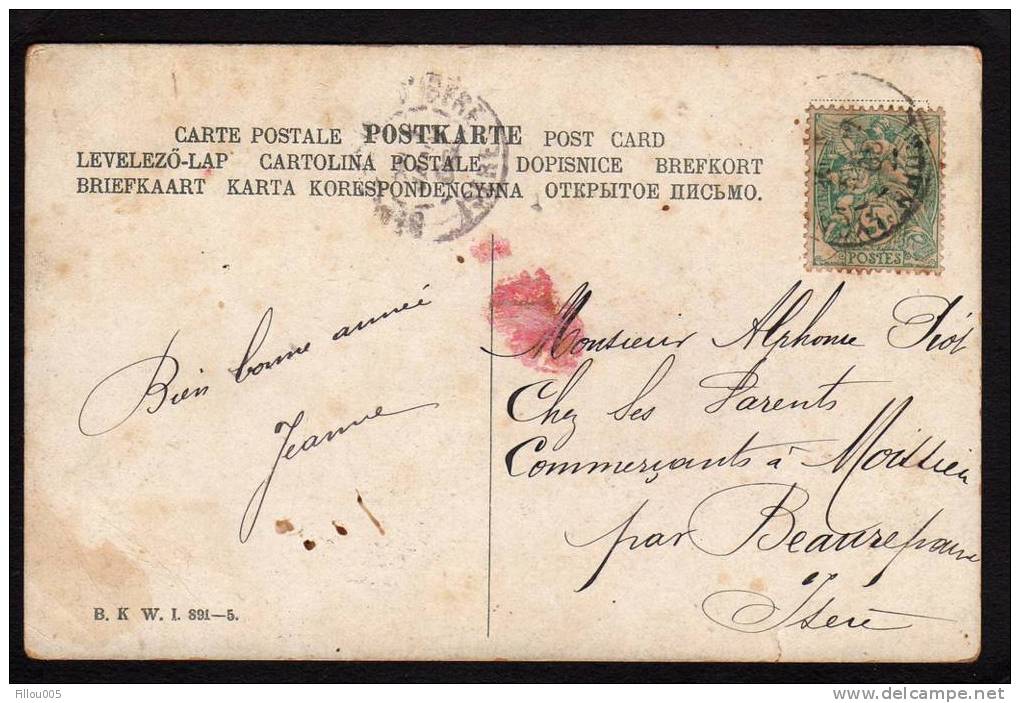 CARTE POSTALE POSTKARTE POST CARD
LEVELEZŐ-LAP CARTOLINA POSTALE DOPISNICE BREFKORT
BRIEFKAART KARTA KORESPONDENCYJNA ОТКРЫТОЕ ПИСЬМО.
POSTES
Bien bonne année
Jeanne
Monsieur Alphonse Piot
Chez Ses Parents
Commerçants à Moissieu
par Beaurepaire
Isère
B. K W. I. 891—5.
Filou005
delcampe.net